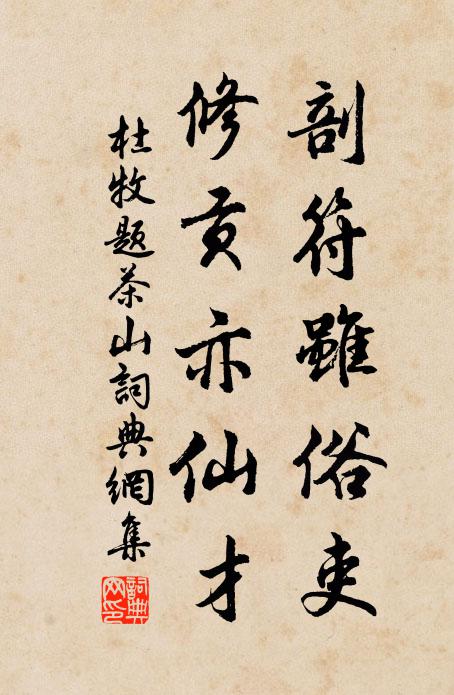 剖符雖俗吏
修貢亦仙才
杜牧題茶山詞典網集
詞典网印